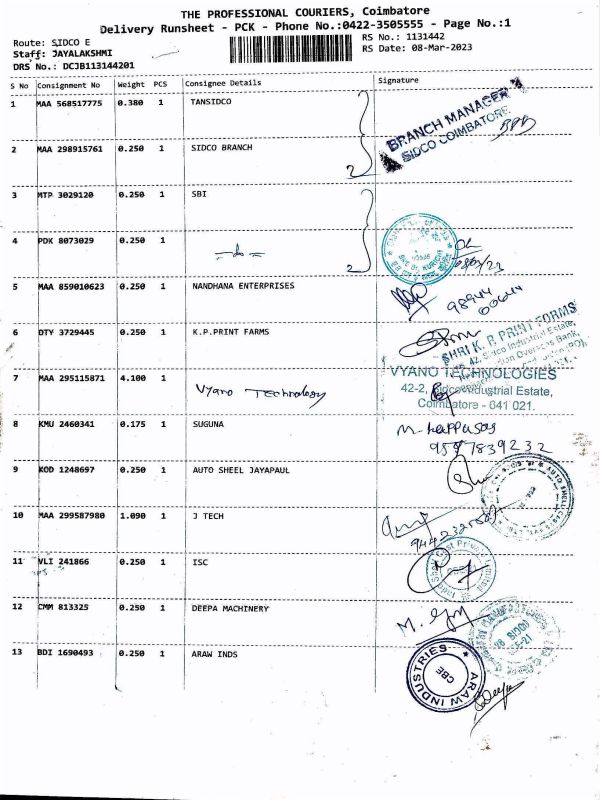 THE PROFESSIONAL COURIERS, Coimbatore
Delivery Runsheet - PCK - Phone No.:0422-3505555 - Page No.:1
Route: SIDCO E
RS No.: 1131442
Staff: JAYALAKSHMI
RS Date: 08-Mar-2023
DRS No.: DCJB113144201
S No Consignment No Weight PCS Consignee Details Signature
1 MAA 568517775 0.380 1 TANSIDCO
BRANCH MANAGER
SIDCO COIMBATORE
2 MAA 298915761 0.250 1 SIDBCO BRANCH
2
3 MTP 3029120 0.250 1 SBI
4 PDK 8073029 0.250 1 -do-
2
5 MAA 859010623 0.250 1 NANDHANA ENTERPRISES
98944
00644
6 DTY 3729445 0.250 1 K.P.PRINT FARMS
SHRI K. P. PRINT FORMS
42, Sidco Industrial Estate,
7 MAA 295115871 4.100 1 Vyano Technology
VYANO TECHNOLOGIES
42-2, Sidco Industrial Estate,
Coimbatore - 641 021.
8 KMU 2460341 0.175 1 SUGUNA
9597839232
9 KOD 1248697 0.250 1 AUTO SHEEL JAYAPAUL
10 MAA 299587980 1.090 1 J TECH
11 VLI 241866 0.250 1 ISC
12 CMM 813325 0.250 1 DEEPA MACHINERY
SIDCO
13 BDI 1690493 0.250 1 ARAW INDS
ARAW INDUSTRIES
CBE